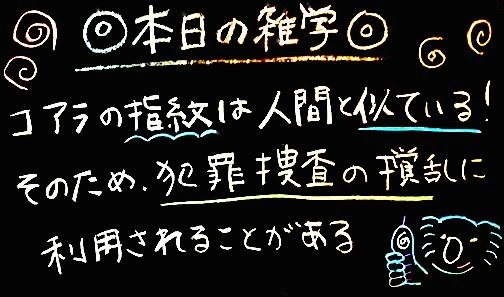 ◎本日の雑学◎
コアラの指紋は人間と似ている!
そのため、犯罪捜査の撹乱に
利用されることがある